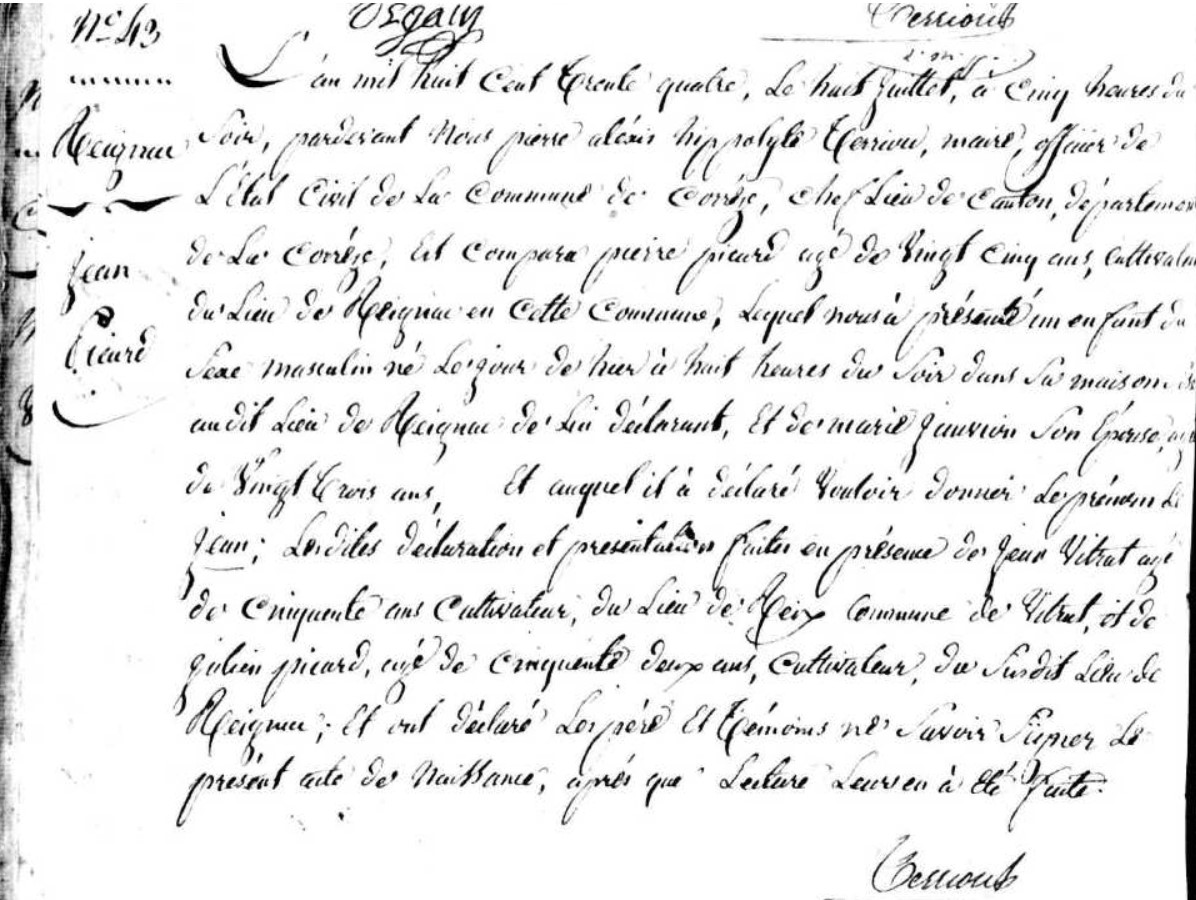 N° 43
Terriout
L'an mil huit Cent trente quatre, Le huit Juillet, à Cinq heures du
Soir, pardevant Nous pierre alexis hippolyte Terriou, maire, officier de
L'État Civil de La Commune de Corrèze, Chef Lieu de Canton, département
Reignac
de La Corrèze, Est Comparu pierre picard agé de Vingt Cinq ans, Cultivateur
du Lieu de Reignac en Cette Commune, Lequel nous à présenté un enfant du
Sexe masculin né Le jour de hier à huit heures du Soir dans Sa maison
audit Lieu de Reignac de Lui déclarant, Et de marie Jauvion Son Épouse, agée
de Vingt trois ans, Et auquel il à déclaré Vouloir donner Le prénom de
Jean
Picard
Jean; Lesdites déclaration et presentation faites en présence de Jean Vitrat agé
de Cinquante ans Cultivateur, du Lieu de Reix Commune de Vitrat, et de
julien picard, agé de Cinquante deux ans, Cultivateur, du Susdit Lieu de
Reignac; Et ont déclaré Les père Et témoins ne Savoir Signer Le
présent acte de Naissance, après que Lecture Leur en à Été faite.
Terriout